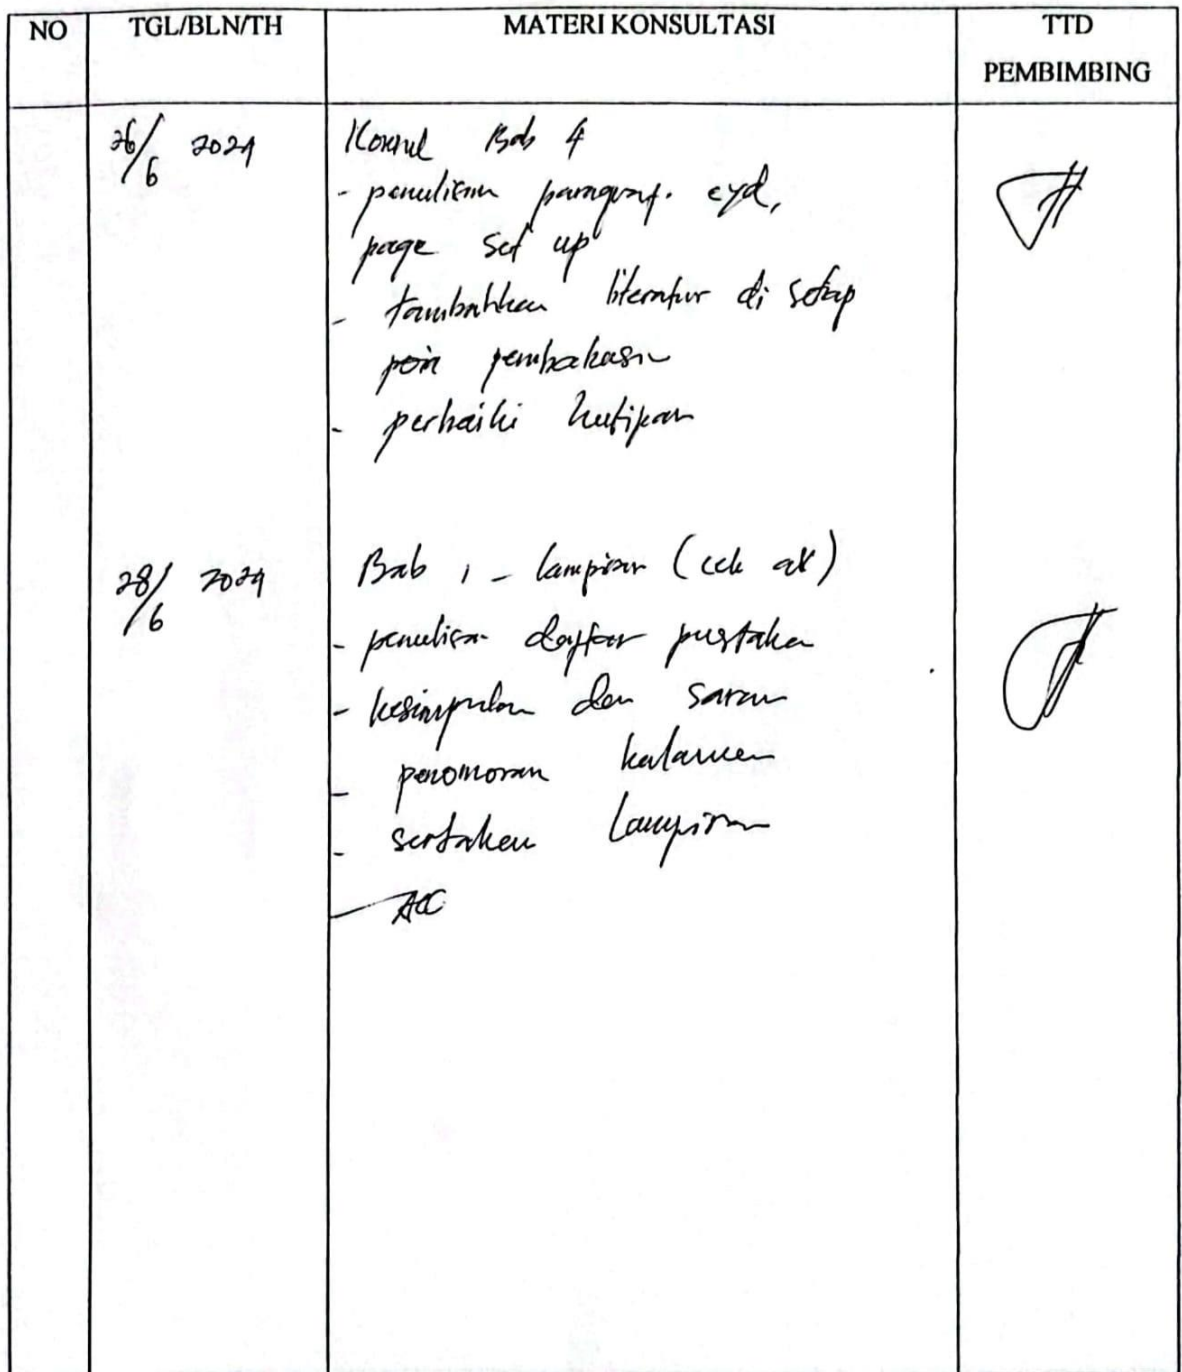 NO TGL/BLN/TH MATERI KONSULTASI TTD
PEMBIMBING
26/6 2024 Konsul Bab 4
- penulisan paragraf. eyd,
page set up
- tambahkan literatur di setiap
poin pembahasan
- perbaiki kutipan
28/6 2024 Bab 1 - lampiran (cek all)
- penulisan daftar pustaka
- kesimpulan dan saran
- penomoran halaman
- sertakan lampiran
- ACC